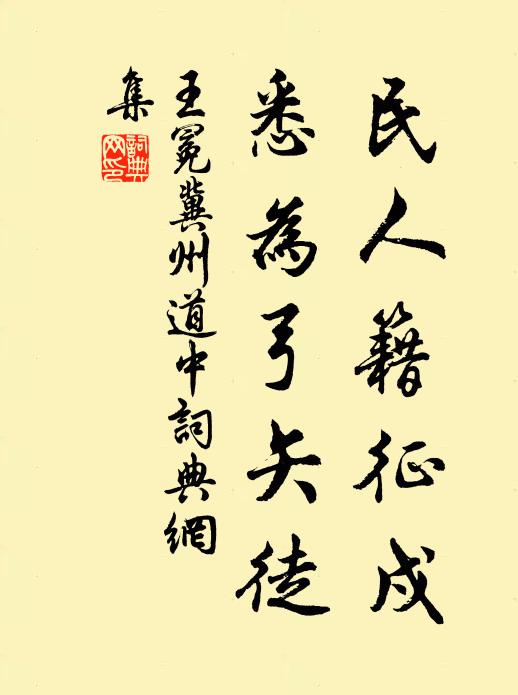 民人籍征戍
悉為弓矢徒
王冕冀州道中詞典網
集
詞典
网印